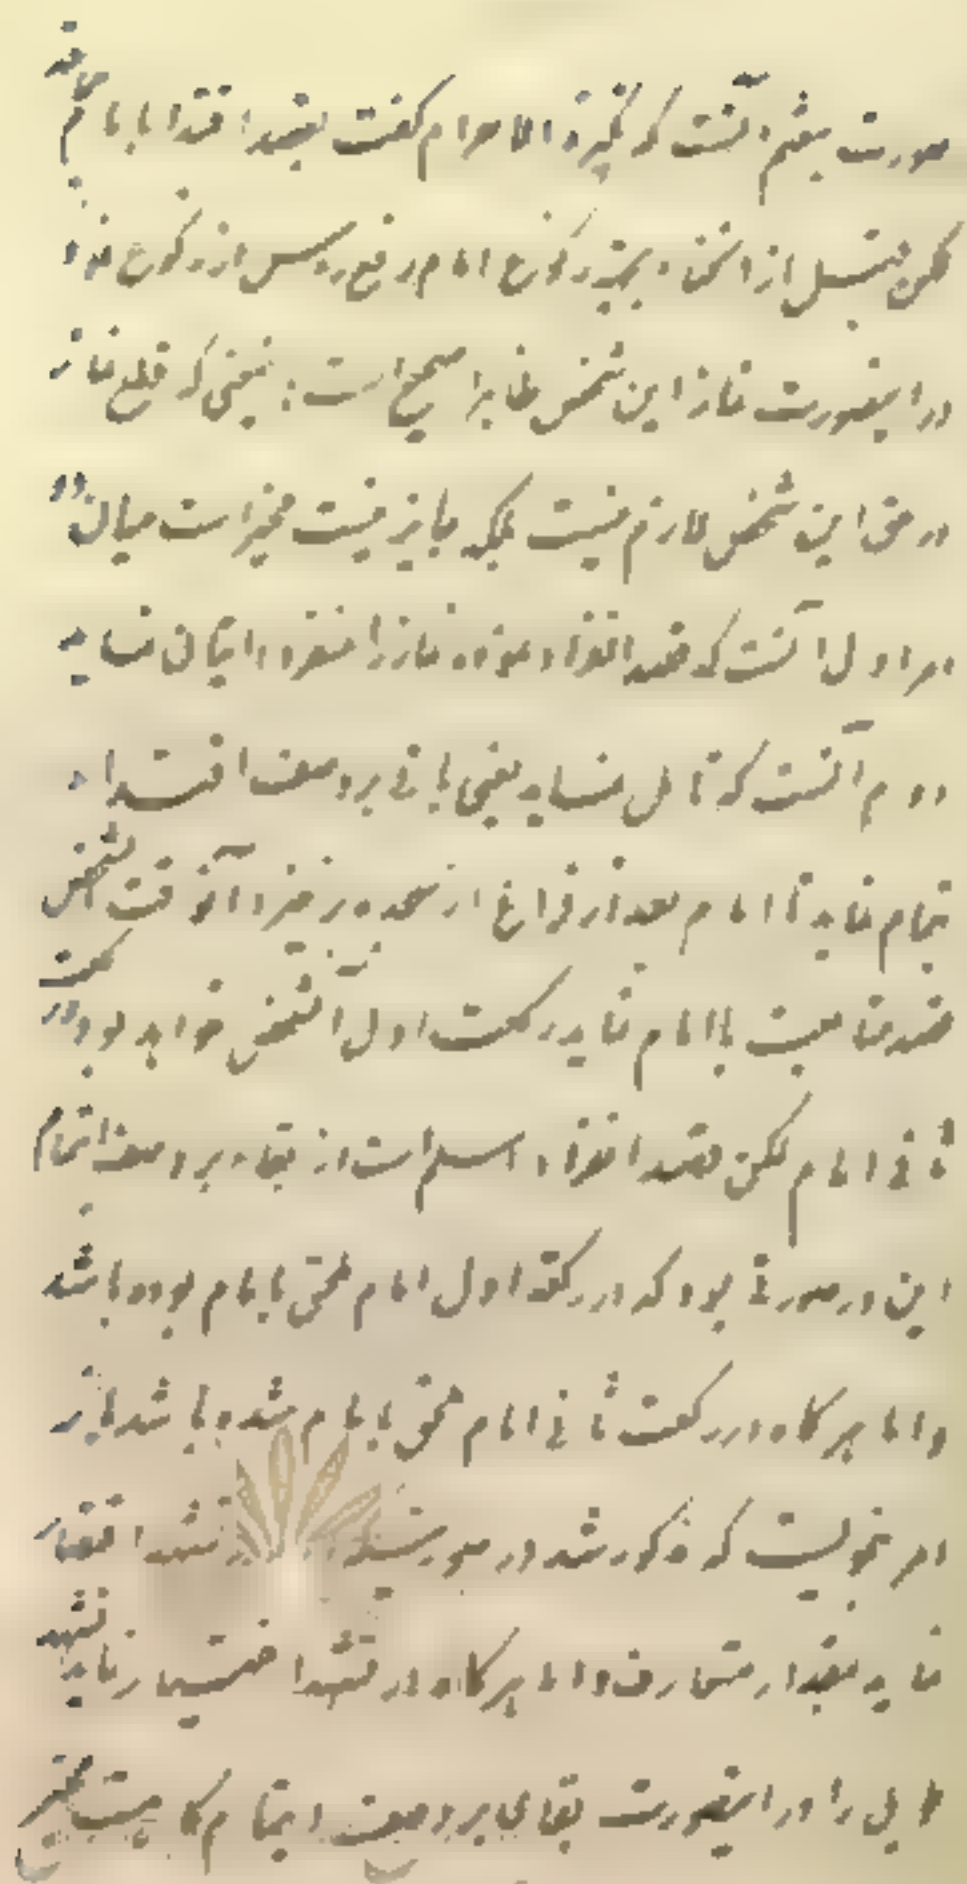 صورت هشتم آنست که تکبیرة الاحرام گفت بقصد اقتدا با امام حاضر
لکن قبل از انحناء بجهة رکوع امام رفع رأس از رکوع نمود
در اینصورت نماز این شخص ظاهرا صحیح است بمعنی که قطع نماز
در حق این شخص لازم نیست بلکه جایز نیست مخیر است میان دو
امر اول آنست که قصد انفراد نموده نماز را منفردا اتیان نماید
دوم آنست که تأمل نماید یعنی باقی بر وصف اقتداء
تمام نماید تا امام بعد از فراغ از سجده برخیزد آنوقت آنشخص
قصد متابعت با امام نماید رکعت اول آنشخص خواهد بود و رکعت
ثانی امام لکن قصد انفراد اسلم است از بقاء بر وصف ایتمام
این در صورتی بود که در رکعة اول امام ملحق بامام بوده باشد
و اما هرگاه در رکعت ثانی امام ملحق بامام شده باشد باز
امر بنحویست که مذکور شد در صورتیکه در تشهد اقتصار
نماید بمقدار متعارف و اما هرگاه در تشهد اختیار نماید تشهد
طویل را در اینصورت بقای بر وصف ایتمام